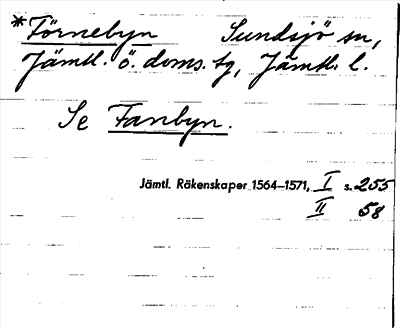 *Törnebyn Sundsjö sn,
Jämtl. ö. doms. tg, Jämtl. l.
Se Fanbyn.
Jämtl. Räkenskaper 1564–1571, I s. 255
II 58